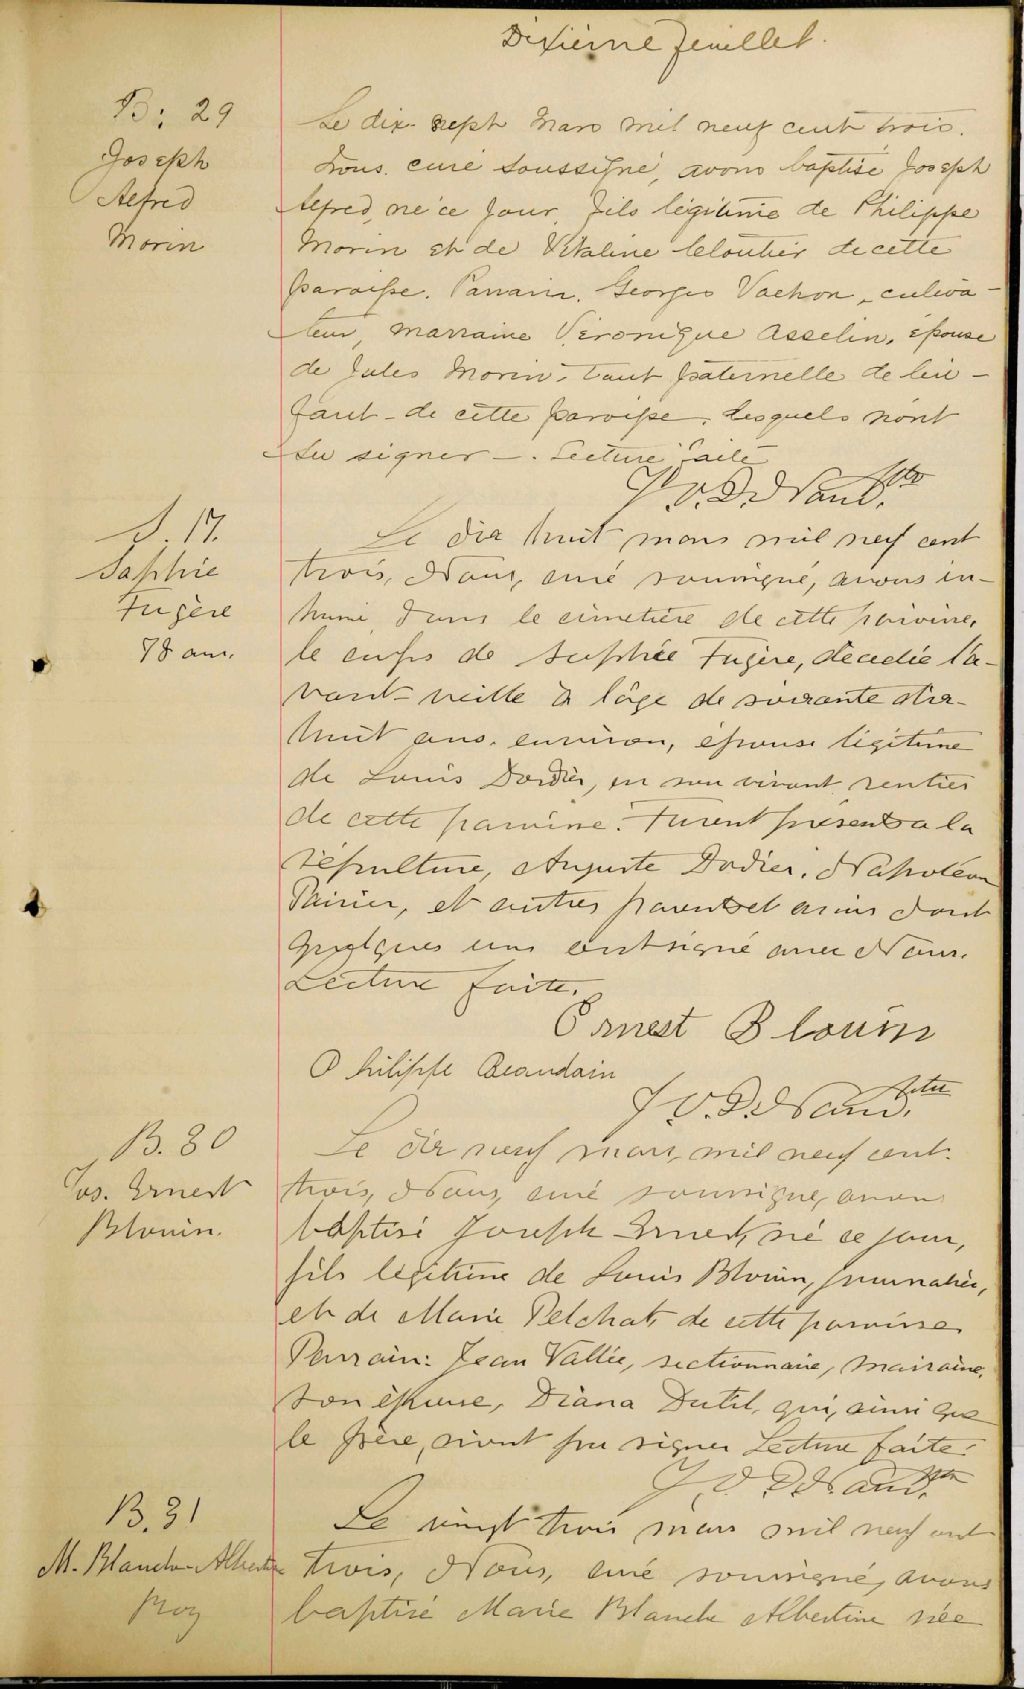 Dixième feuillet.
B. 29
Joseph
Alfred
Morin
Le dix-sept Mars mil neuf cent trois.
Nous curé soussigné, avons baptisé Joseph
Alfred, né ce jour, fils légitime de Philippe
Morin et de Vitaline Cloutier de cette
paroisse. Parrain, Georges Vachon, cultiva-
teur, marraine Véronique Asselin, épouse
de Jules Morin, tant paternelle de l'en-
fant - de cette paroisse, lesquels n'ont
su signer —. Lecture faite
J. V. D. Naud. Ptre
S. 17.
Sophie
Fugère
78 ans.
Le dix huit mars mil neuf cent
trois, Nous, curé soussigné, avons in-
humé dans le cimetière de cette paroisse,
le corps de Sophie Fugère, décédée l'a-
vant-veille à l'âge de soixante dix-
huit ans environ, épouse légitime
de Louis Dodier, en son vivant rentier
de cette paroisse. Furent présents à la
sépulture, Auguste Dodier, Napoléon
Poirier, et autres parents et amis dont
quelques uns ont signé avec Nous.
Lecture faite.
Ernest Blouin
Philippe Beaudoin
J. V. D. Naud. Ptre
B. 30
Jos. Ernest
Blouin.
Le dix neuf mars, mil neuf cent
trois, Nous, curé soussigné, avons
baptisé Joseph Ernest, né ce jour,
fils légitime de Louis Blouin, journalier,
et de Marie Pelchat, de cette paroisse
Parrain: Jean Vallée, sectionnaire, marraine,
son épouse, Diana Dutil, qui, ainsi que
le père, n'ont pu signer Lecture faite.
J. V. D. Naud. Ptre
B. 31
M. Blanche-Albertine
Roy
Le vingt trois mars mil neuf cent
trois, Nous, curé soussigné, avons
baptisé Marie Blanche Albertine née